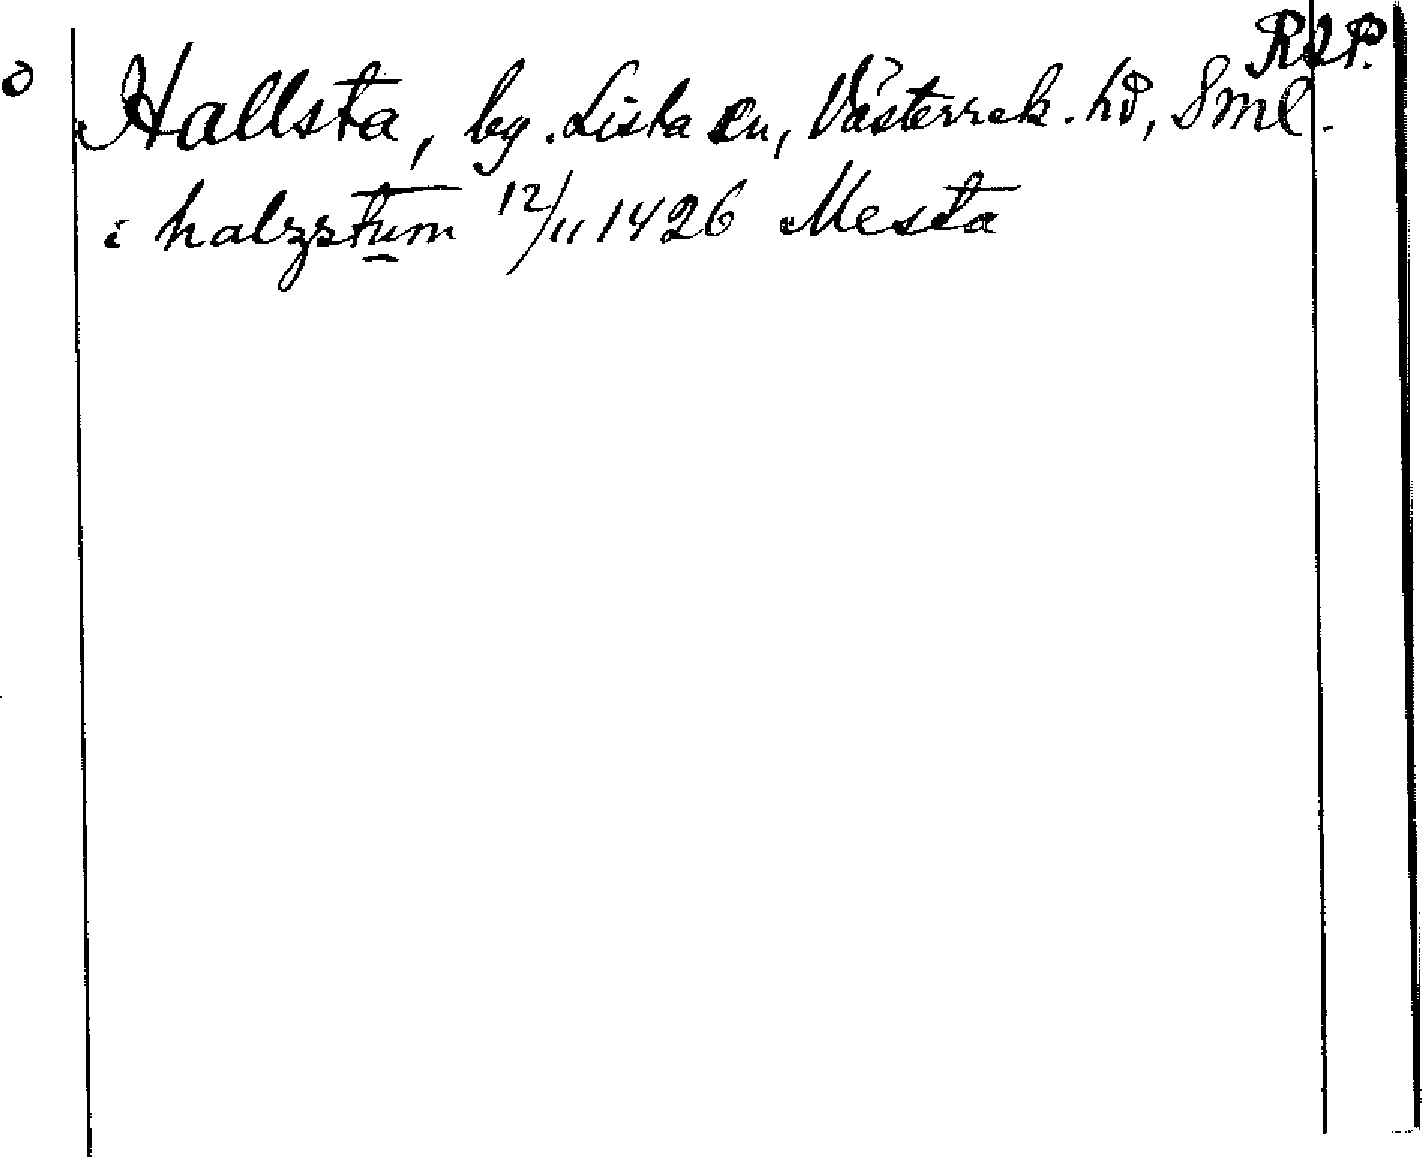 RAP.
o Hallsta, by. Lista sn, Västerrek. hd, Sml.
i halzstum 12/11 1426 Mesta